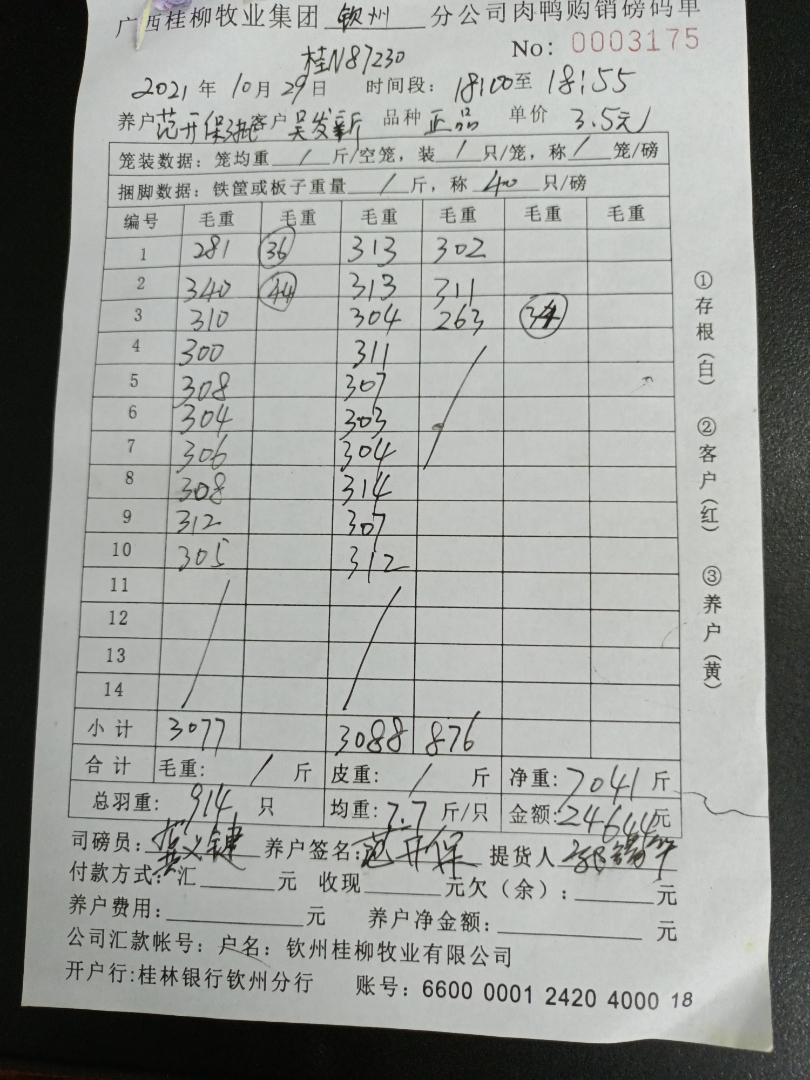 广西桂柳牧业集团 钦州 分公司肉鸭购销磅码单
桂N87230 No: 0003175
2021 年 10 月 29 日 时间段: 18:00 至 18:55
养户 范开保 客户 吴发新 品种 正品 单价 3.5元
笼装数据: 笼均重 / 斤/空笼, 装 / 只/笼, 称 / 笼/磅
捆脚数据: 铁筐或板子重量 / 斤, 称 40 只/磅
编号 毛重 毛重 毛重 毛重 毛重 毛重
1 281 36 313 302
2 340 44 313 311
3 310 304 263 34
4 300 311 /
5 308 307
6 304 303
7 306 304
8 308 314
9 312 307
10 305 312
11 / /
12
13
14
小计 3077 3088 876
合计 毛重: / 斤 皮重: / 斤 净重: 7041 斤
总羽重: 914 只 均重: 7.7 斤/只 金额: 24644 元
司磅员: 养户签名: 范开保 提货人
付款方式: 汇 元 收现 元欠(余): 元
养户费用: 元 养户净金额: 元
公司汇款帐号: 户名: 钦州桂柳牧业有限公司
开户行:桂林银行钦州分行 账号: 6600 0001 2420 4000 18
①存根(白) ②客户(红) ③养户(黄)